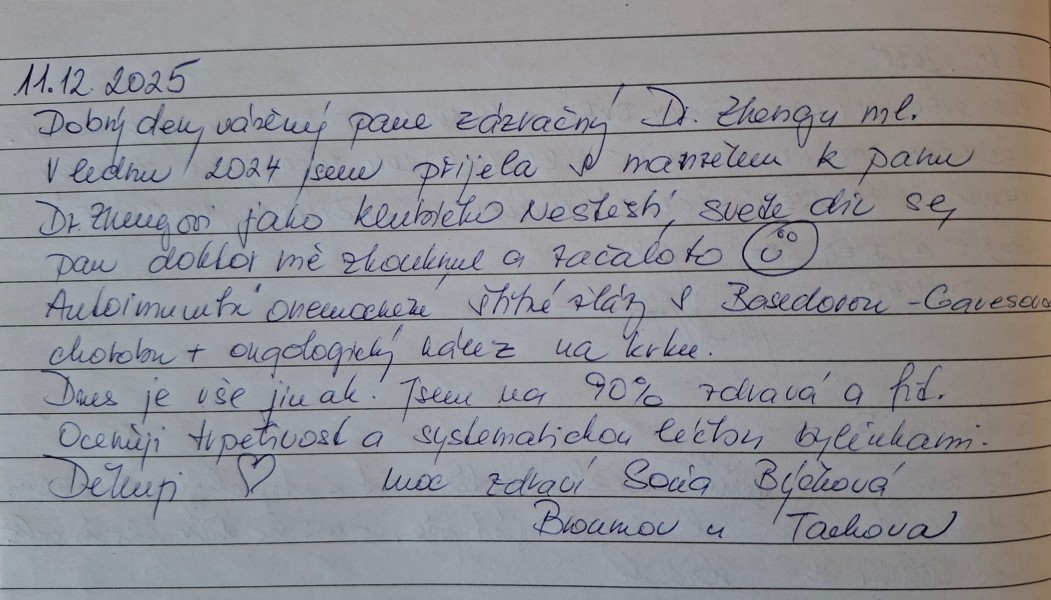 11.12.2025
Dobrý den, vážený pane zázračný Dr. Zhengu ml.
V lednu 2024 jsem přijela s manželem k panu
Dr. Zhengovi jako klubíčko Neštěstí, sveže díc se,
pan doktor mě zkouknul a začalo to
Autoimunitní onemocnění štítné žlázy s Basedovou - Gavesovo
chorobu + ongologický nález na krku.
Dnes je vše jinak. Jsem na 90% zdravá a fit.
Oceňuji trpělivost a systematickou léčbou bylinkami.
Děkuji moc zdraví Soňa Býčková
Broumov u Tachova